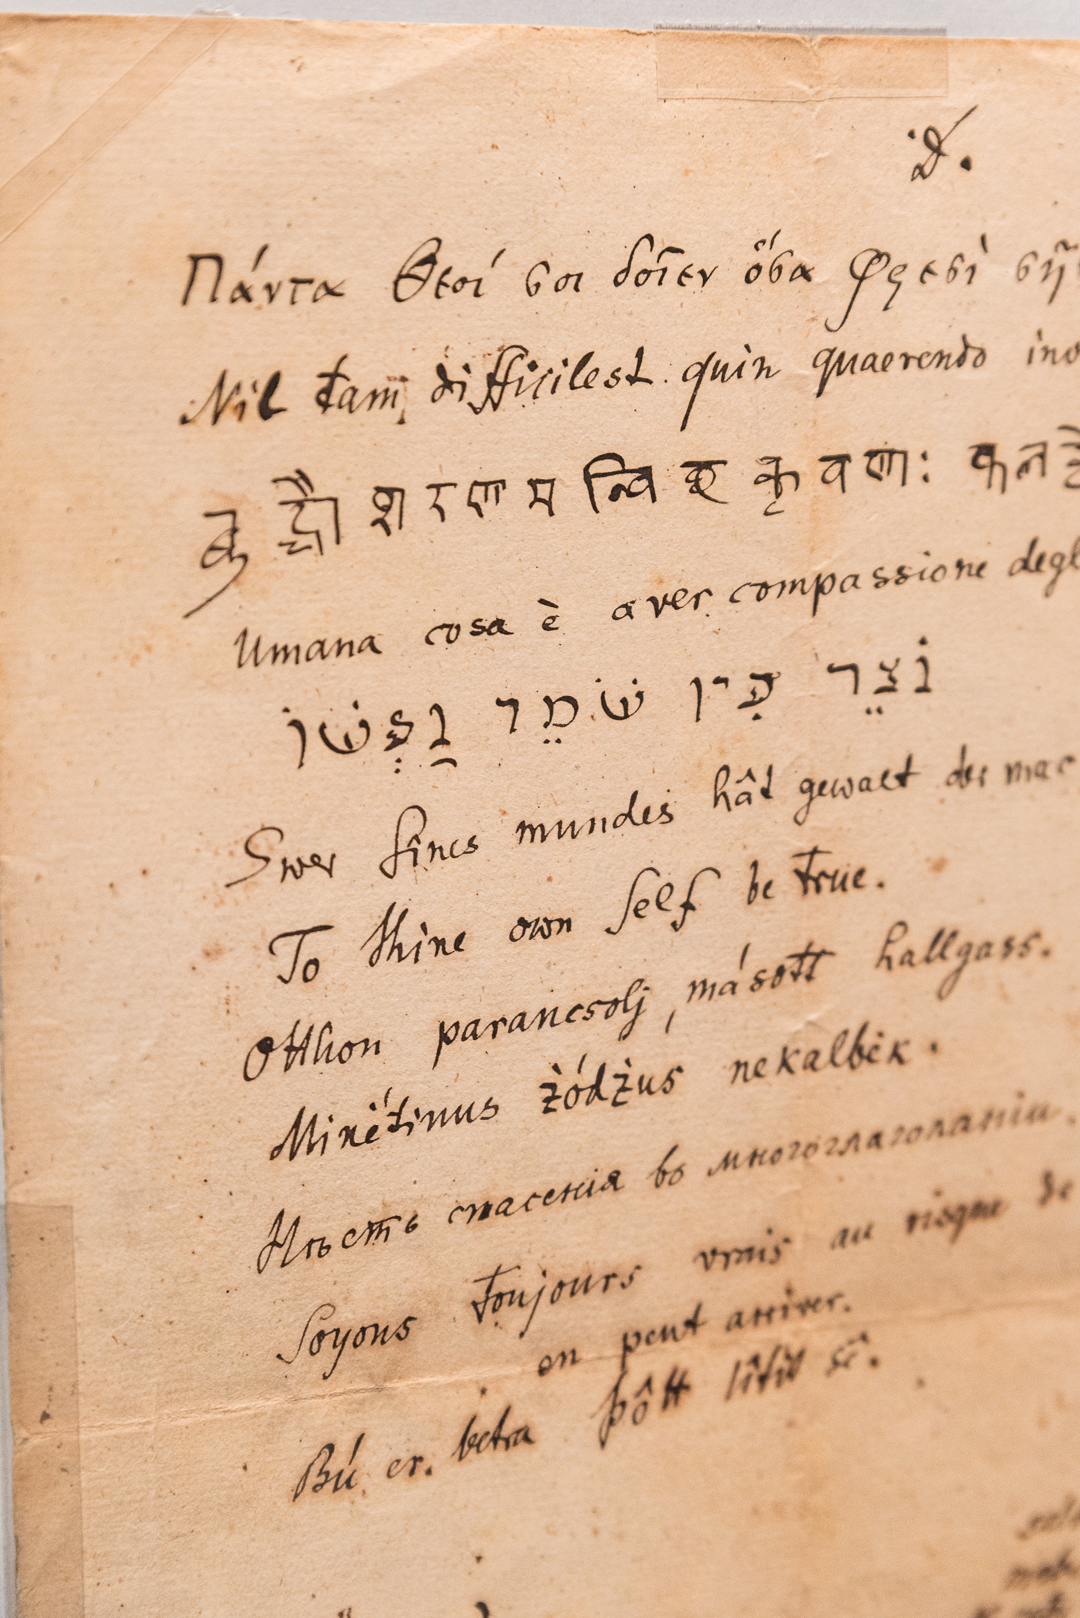 Πάντα Θεοί σοι δοῖεν ὅσα Φρεσὶ σῇ
Nil tam difficilest quin quaerendo inv
बुद्धौ शरणमन्विच्छ कृपणाः फल
Umana cosa è aver compassione degl
נֹצֵר פִּיו שֹׁמֵר נַפְשׁוֹ
Swer sines mundes hât gewalt der mac
To thine own self be true.
Otthon parancsolj, másott hallgass.
Minėtinus żódżus nekalbėk.
Нѣсть спасенія во многоглаголаніи.
Soyons toujours vrais au risque de
en peut arriver.
Bú er betra þôtt lîtit sê.